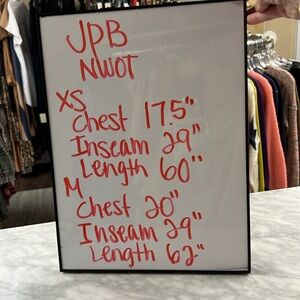 JPB
NWOT
XS
Chest 17.5"
Inseam 29"
Length 60"
M
Chest 20"
Inseam 29"
Length 62"